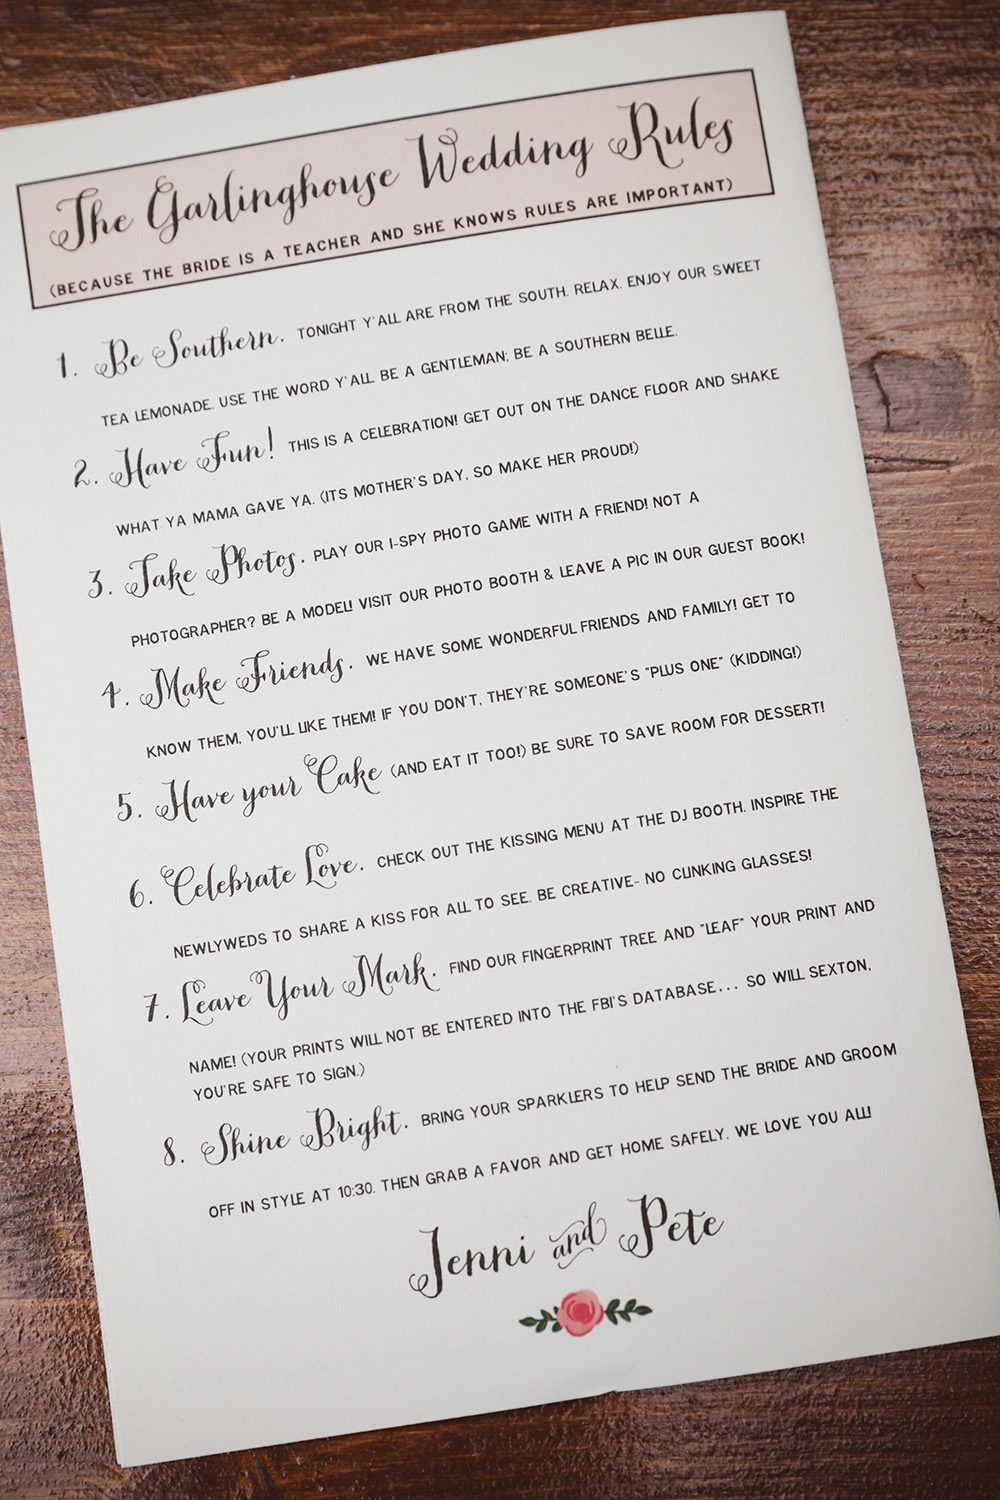 The Garlinghouse Wedding Rules
(BECAUSE THE BRIDE IS A TEACHER AND SHE KNOWS RULES ARE IMPORTANT)
1. Be Southern. TONIGHT Y'ALL ARE FROM THE SOUTH. RELAX. ENJOY OUR SWEET
TEA LEMONADE. USE THE WORD Y'ALL BE A GENTLEMAN; BE A SOUTHERN BELLE.
2. Have Fun! THIS IS A CELEBRATION! GET OUT ON THE DANCE FLOOR AND SHAKE
WHAT YA MAMA GAVE YA. (ITS MOTHER'S DAY, SO MAKE HER PROUD!)
3. Take Photos. PLAY OUR I-SPY PHOTO GAME WITH A FRIEND! NOT A
PHOTOGRAPHER? BE A MODEL! VISIT OUR PHOTO BOOTH & LEAVE A PIC IN OUR GUEST BOOK!
4. Make Friends. WE HAVE SOME WONDERFUL FRIENDS AND FAMILY! GET TO
KNOW THEM, YOU'LL LIKE THEM! IF YOU DON'T, THEY'RE SOMEONE'S "PLUS ONE" (KIDDING!)
5. Have your Cake (AND EAT IT TOO!) BE SURE TO SAVE ROOM FOR DESSERT!
6. Celebrate Love. CHECK OUT THE KISSING MENU AT THE DJ BOOTH. INSPIRE THE
NEWLYWEDS TO SHARE A KISS FOR ALL TO SEE. BE CREATIVE- NO CLINKING GLASSES!
7. Leave Your Mark. FIND OUR FINGERPRINT TREE AND "LEAF" YOUR PRINT AND
NAME! (YOUR PRINTS WILL NOT BE ENTERED INTO THE FBI'S DATABASE... SO WILL SEXTON,
YOU'RE SAFE TO SIGN.)
8. Shine Bright. BRING YOUR SPARKLERS TO HELP SEND THE BRIDE AND GROOM
OFF IN STYLE AT 10:30. THEN GRAB A FAVOR AND GET HOME SAFELY. WE LOVE YOU ALL!
Jenni and Pete